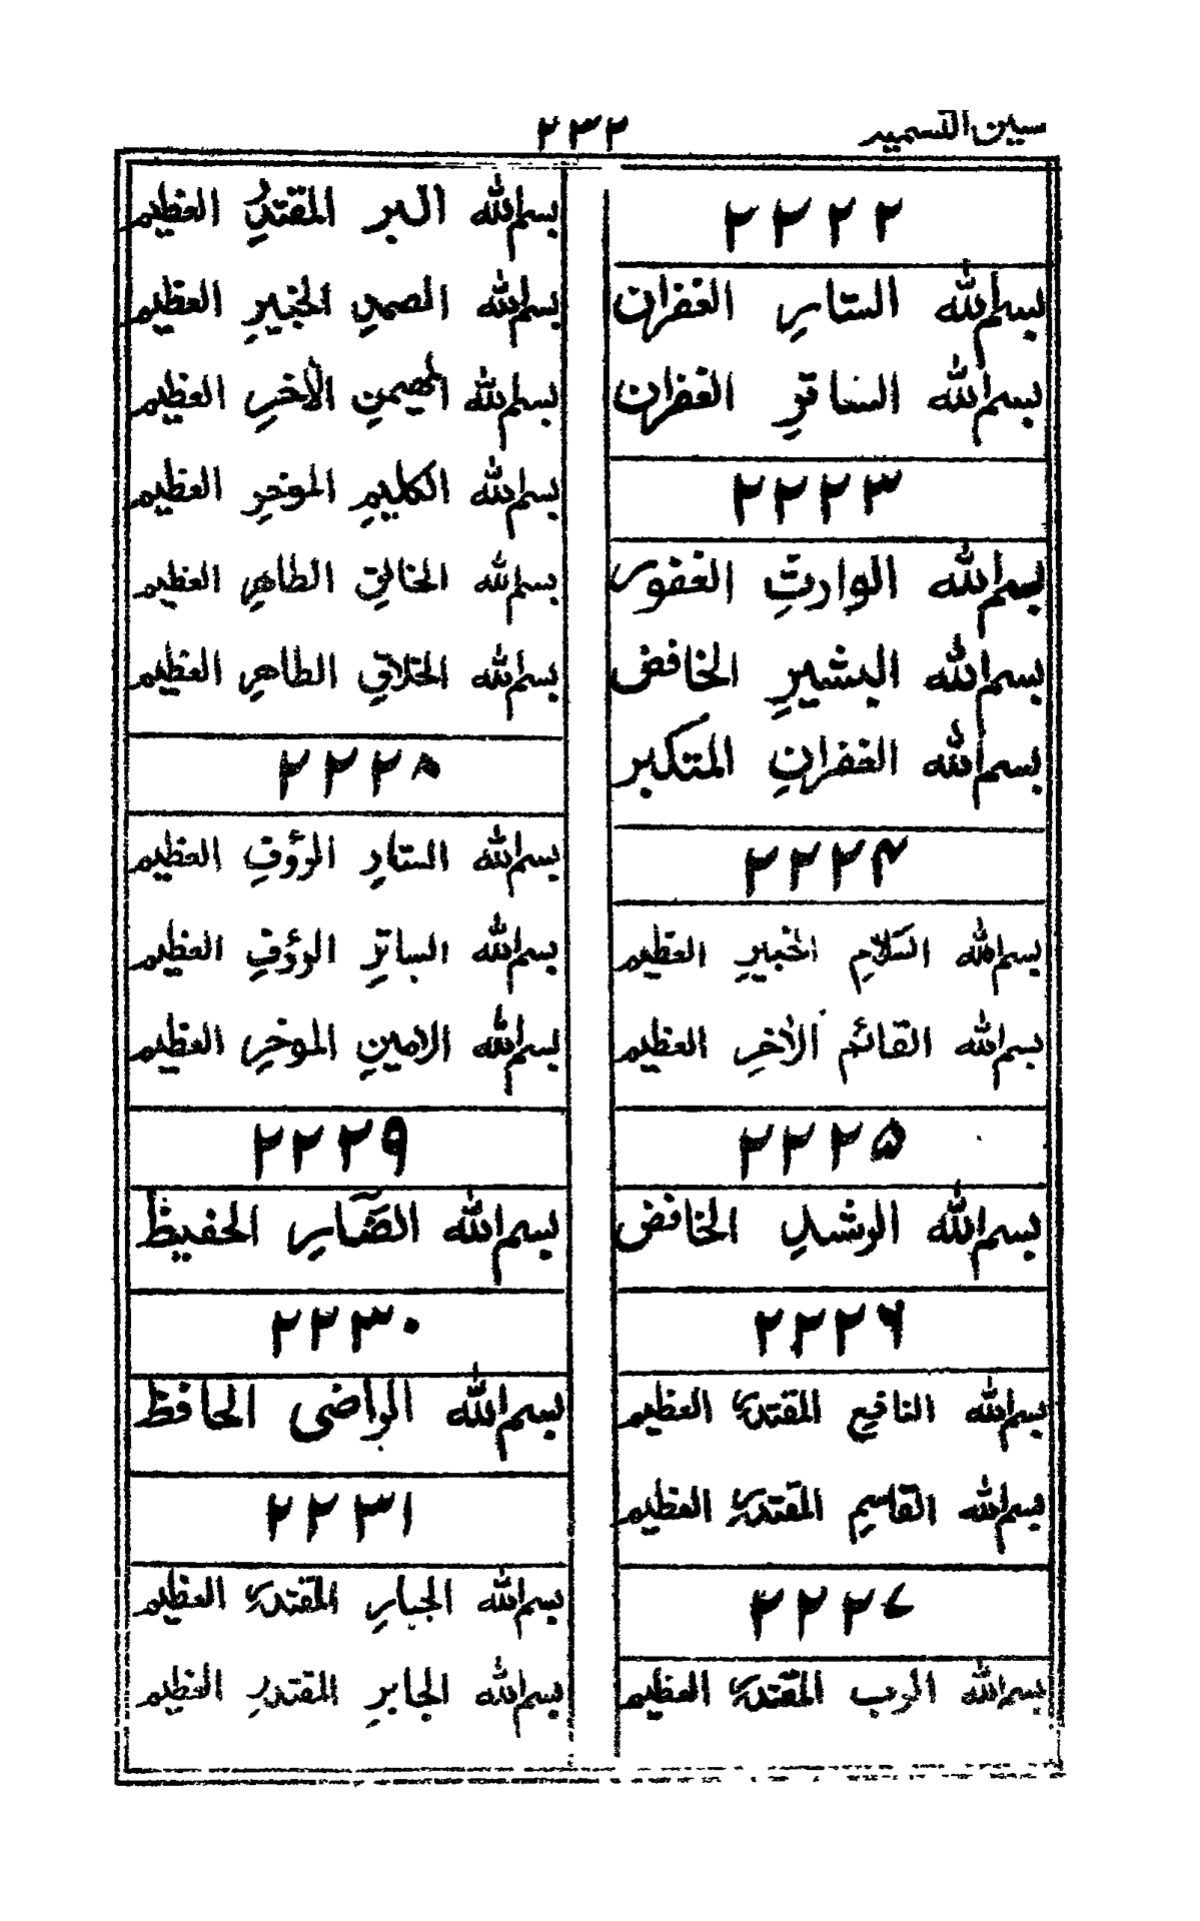 سیین التسمیہ
۲۳۲
۲۲۲۲
بسم الله الستار الغفران
بسم الله الساتر الغفران
۲۲۲۳
بسم الله الوارث الغفور
بسم الله البشیر الخافض
بسم الله الغفران المتکبر
۲۲۲۴
بسم الله السلام الخبیر العظیم
بسم الله القائم الآخر العظیم
۲۲۲۵
بسم الله الرشد الخافض
۲۲۲۶
بسم الله النافع المقتدر العظیم
بسم الله القاسم المقتدر العظیم
۲۲۲۷
بسم الله الرب المقتدر العظیم
بسم الله البر المقتدر العظیم
بسم الله الصمد الخبیر العظیم
بسم الله المهیمن الآخر العظیم
بسم الله الکلیم الموخر العظیم
بسم الله الخالق الطاهر العظیم
بسم الله الخلاق الطاهر العظیم
۲۲۲۸
بسم الله الستار الرؤف العظیم
بسم الله الساتر الرؤف العظیم
بسم الله الامین الموخر العظیم
۲۲۲۹
بسم الله الضار الحفیظ
۲۲۳۰
بسم الله الراضی الحافظ
۲۲۳۱
بسم الله الجبار المقتدر العظیم
بسم الله الجابر المقتدر العظیم